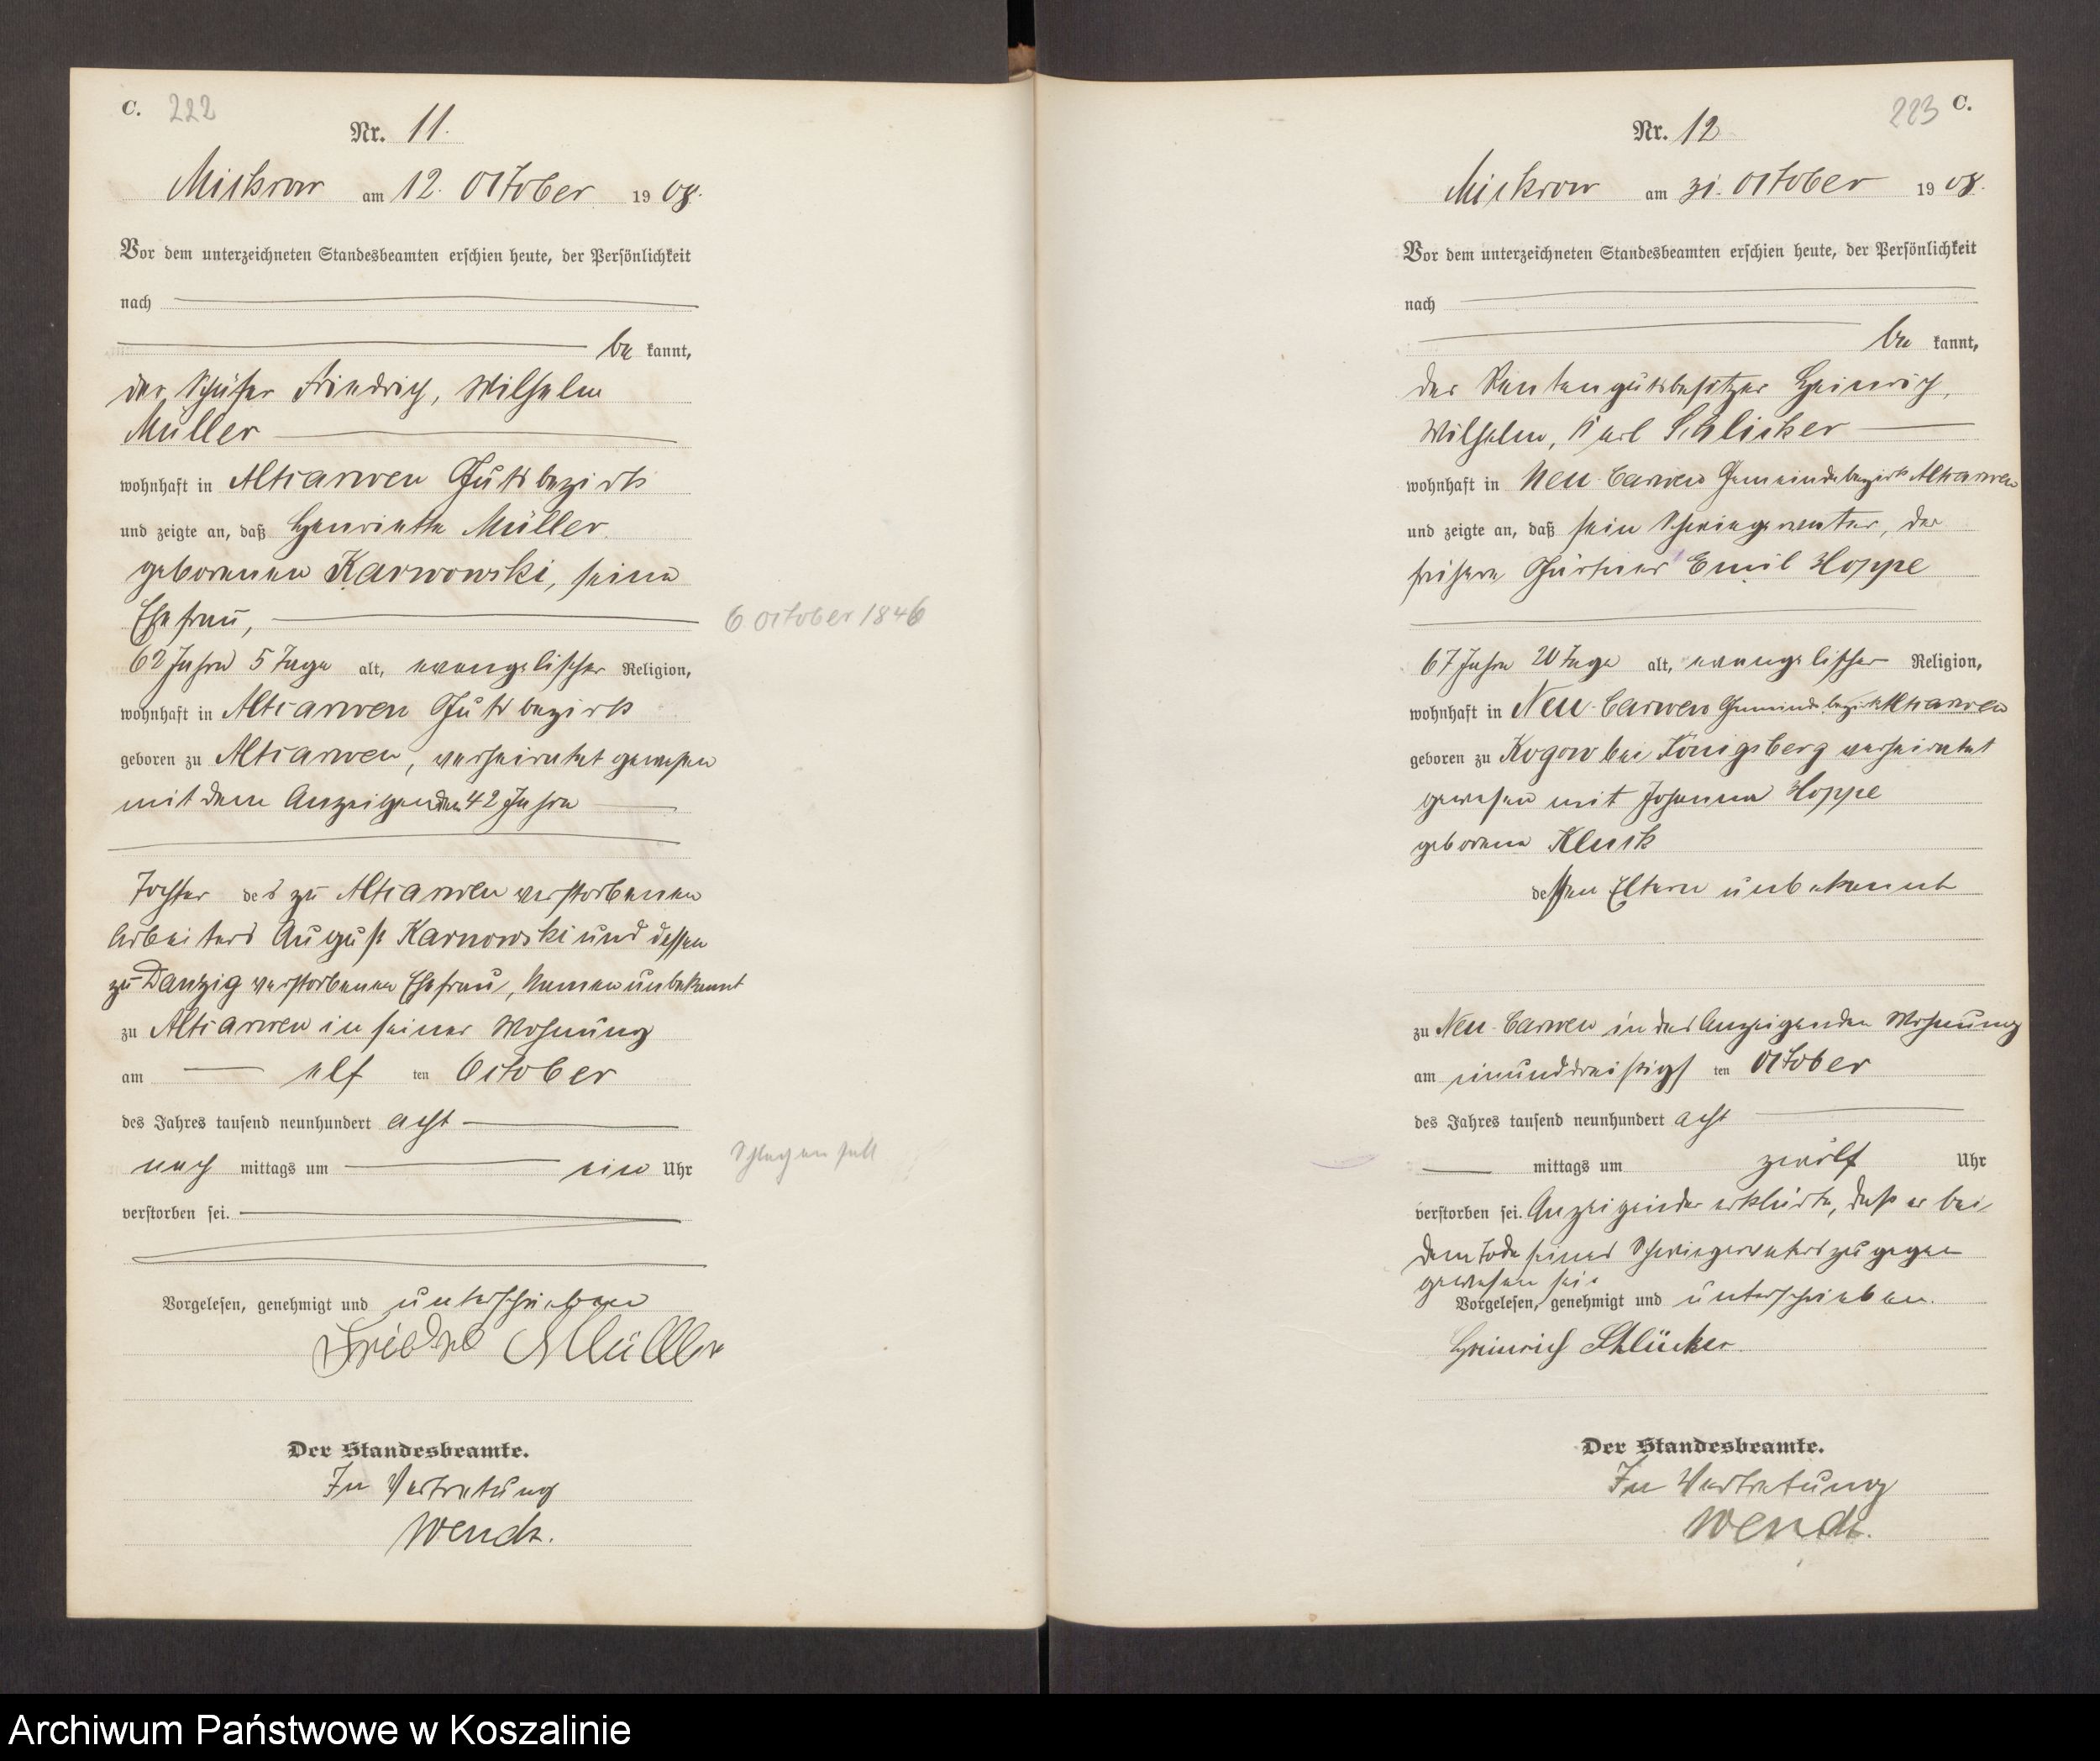 C. 222
Nr. 11.
Mickrow am 12. October 1908.
Vor dem unterzeichneten Standesbeamten erschien heute, der Persönlichkeit
nach
be kannt,
der Schäfer Friedrich, Wilhelm
Müller
wohnhaft in Altcarwen Gutsbezirk
und zeigte an, daß Henriette Müller
geborenen Karwowski, seine
Ehefrau,
6 October 1846
62 Jahre 5 Tage alt, evangelischer Religion,
wohnhaft in Altcarwen Gutsbezirk
geboren zu Altcarwen, verheiratet gewesen
mit dem Anzeigenden 42 Jahre
Tochter des zu Altcarwen verstorbenen
Arbeiters August Karnowski und dessen
zu Danzig verstorbenen Ehefrau, Namen unbekannt
zu Altcarwen in seiner Wohnung
am elf ten October
des Jahres tausend neunhundert acht
nach mittags um ein Uhr
Schlaganfall
verstorben sei.
Vorgelesen, genehmigt und unterschrieben
Müller
Der Standesbeamte.
In Vertretung
Wendt.
223 C.
Nr. 12
Mickrow am 31. October 1908.
Vor dem unterzeichneten Standesbeamten erschien heute, der Persönlichkeit
nach
be kannt,
der Rentengutsbesitzer Heinrich,
Wilhelm, Karl Schlicker
wohnhaft in Neu-Carwen Gemeindebezirk Altcarwen
und zeigte an, daß sein Schwiegervater, der
frühere Gärtner Emil Hoppe
67 Jahre 20 Tage alt, evangelischer Religion,
wohnhaft in Neu-Carwen Gemeindebezirk Altcarwen
geboren zu Kogow bei Königsberg verheiratet
gewesen mit Johanna Hoppe
geborene
dessen Eltern unbekannt
zu Neu-Carwen in des Anzeigenden Wohnung
am einunddreißigs ten October
des Jahres tausend neunhundert acht
mittags um zwölf Uhr
verstorben sei. Anzeigender erklärte, daß er bei
dem Tode seines Schwiegervaters zugegen
gewesen sei.
Vorgelesen, genehmigt und unterschrieben.
Heinrich Schlücker
Der Standesbeamte.
In Vertretung
Wendt.
Archiwum Państwowe w Koszalinie